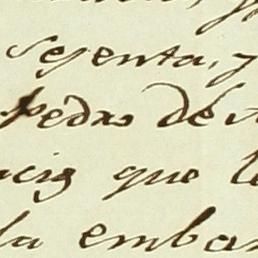 Sesenta, y
Pedro de
que le
la embar